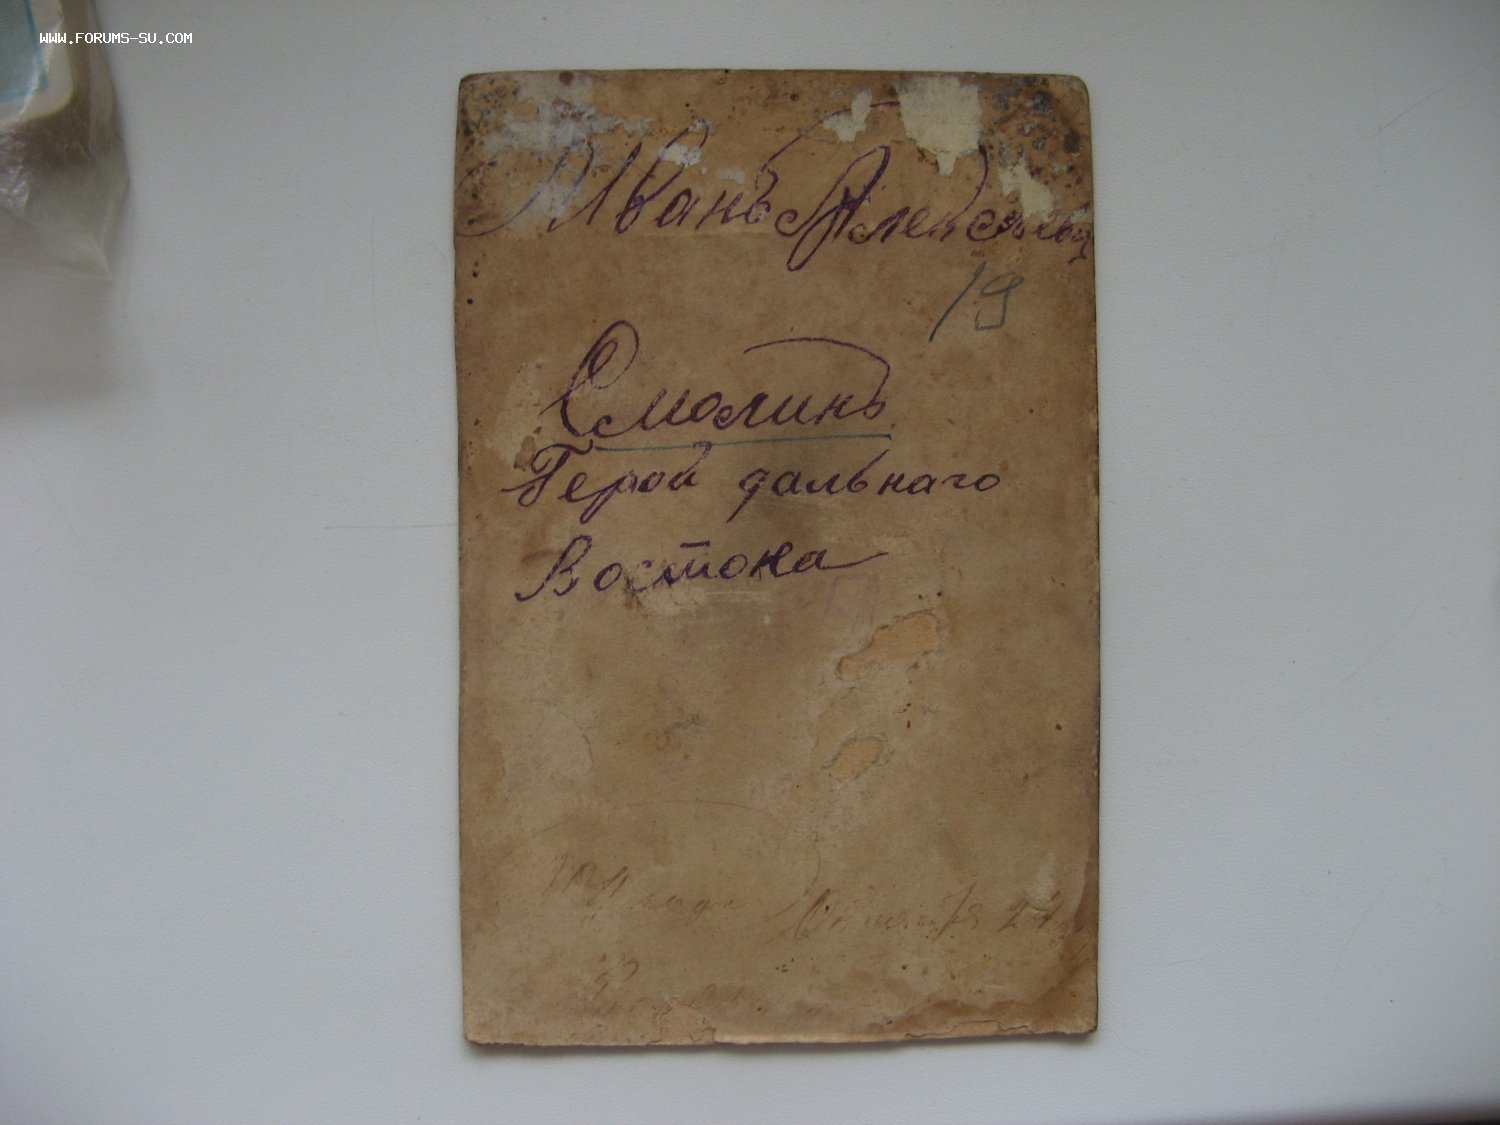 WWW.FORUMS-SU.COM
Иванъ Алексѣевичъ
19
Смолинъ
Герой дальнаго
Востока
года Октября 24